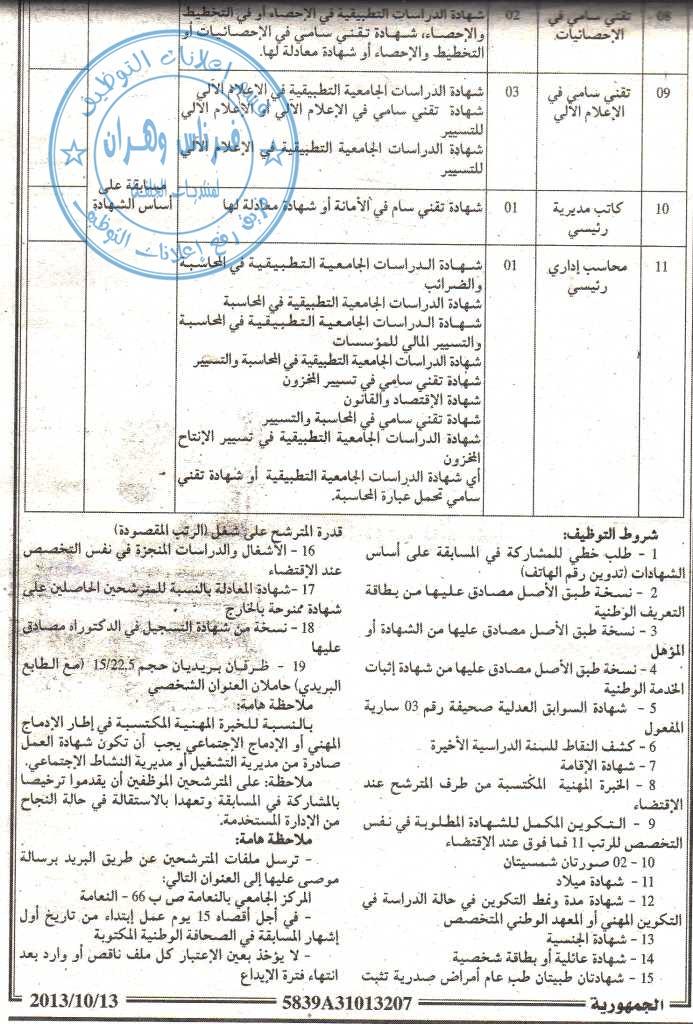 08
تقني سامي في
الإحصائيات
02
شهادة الدراسات التطبيقية في الإحصاء أو في التخطيط
والإحصاء، شهادة تقني سامي في الإحصائيات أو
التخطيط والإحصاء أو شهادة معادلة لها.
09
تقني سامي في
الإعلام الآلي
03
شهادة الدراسات الجامعية التطبيقية في الإعلام الآلي
شهادة تقني سامي في الإعلام الآلي أو الإعلام الآلي
للتسيير
شهادة الدراسات الجامعية التطبيقية في الإعلام الآلي
للتسيير
10
كاتب مديرية
رئيسي
01
شهادة تقني سام في الأمانة أو شهادة معادلة لها
مسابقة على
أساس الشهادة
11
محاسب إداري
رئيسي
01
شهادة الدراسات الجامعية التطبيقية في المحاسبة
والضرائب
شهادة الدراسات الجامعية التطبيقية في المحاسبة
شهادة الدراسات الجامعية التطبيقية في المحاسبة
والتسيير المالي للمؤسسات
شهادة الدراسات الجامعية التطبيقية في المحاسبة والتسيير
شهادة تقني سامي في تسيير المخزون
شهادة الإقتصاد والقانون
شهادة تقني سامي في المحاسبة والتسيير
شهادة الدراسات الجامعية التطبيقية في تسيير الإنتاج
المخزون
أي شهادة الدراسات الجامعية التطبيقية أو شهادة تقني
سامي تحمل عبارة المحاسبة.
إعلانات التوظيف
فرناس وهران
فريق رفع إعلانات التوظيف
شروط التوظيف:
1 - طلب خطي للمشاركة في المسابقة على أساس
الشهادات (تدوين رقم الهاتف)
2 - نسخة طبق الأصل مصادق عليها من بطاقة
التعريف الوطنية
3 - نسخة طبق الأصل مصادق عليها من الشهادة أو
المؤهل
4 - نسخة طبق الأصل مصادق عليها من شهادة إثبات
الخدمة الوطنية
5 - شهادة السوابق العدلية صحيفة رقم 03 سارية
المفعول
6 - كشف النقاط للسنة الدراسية الأخيرة
7 - شهادة الإقامة
8 - الخبرة المهنية المكتسبة من طرف المترشح عند
الإقتضاء
9 - التكوين المكمل للشهادة المطلوبة في نفس
التخصص للرتب 11 فما فوق عند الإقتضاء
10 - 02 صورتان شمسيتان
11 - شهادة ميلاد
12 - شهادة مدة ونمط التكوين في حالة الدراسة في
التكوين المهني أو المعهد الوطني المتخصص
13 - شهادة الجنسية
14 - شهادة عائلية أو بطاقة شخصية
15 - شهادتان طبيتان طب عام أمراض صدرية تثبت
قدرة المترشح على شغل (الرتب المقصودة)
16 - الأشغال والدراسات المنجزة في نفس التخصص
عند الإقتضاء
17 - شهادة المعادلة بالنسبة للمترشحين الحاصلين على
شهادة ممنوحة بالخارج
18 - نسخة من شهادة التسجيل في الدكتوراه مصادق
عليها
19 - ظرفان بريديان حجم 15/22.5 (مع الطابع
البريدي) حاملان العنوان الشخصي
ملاحظة هامة:
بالنسبة للخبرة المهنية المكتسبة في إطار الإدماج
المهني أو الإدماج الإجتماعي يجب أن تكون شهادة العمل
صادرة من مديرية التشغيل أو مديرية النشاط الإجتماعي.
ملاحظة: على المترشحين الموظفين أن يقدموا ترخيصا
بالمشاركة في المسابقة وتعهدا بالاستقالة في حالة النجاح
من الإدارة المستخدمة.
ملاحظة هامة:
- ترسل ملفات المترشحين عن طريق البريد برسالة
موصى عليها إلى العنوان التالي:
المركز الجامعي بالنعامة ص ب 66 - النعامة
- في أجل أقصاه 15 يوم عمل إبتداء من تاريخ أول
إشهار المسابقة في الصحافة الوطنية المكتوبة
- لا يؤخذ بعين الإعتبار كل ملف ناقص أو وارد بعد
انتهاء فترة الإيداع
الجمهورية
5839A31013207
2013/10/13